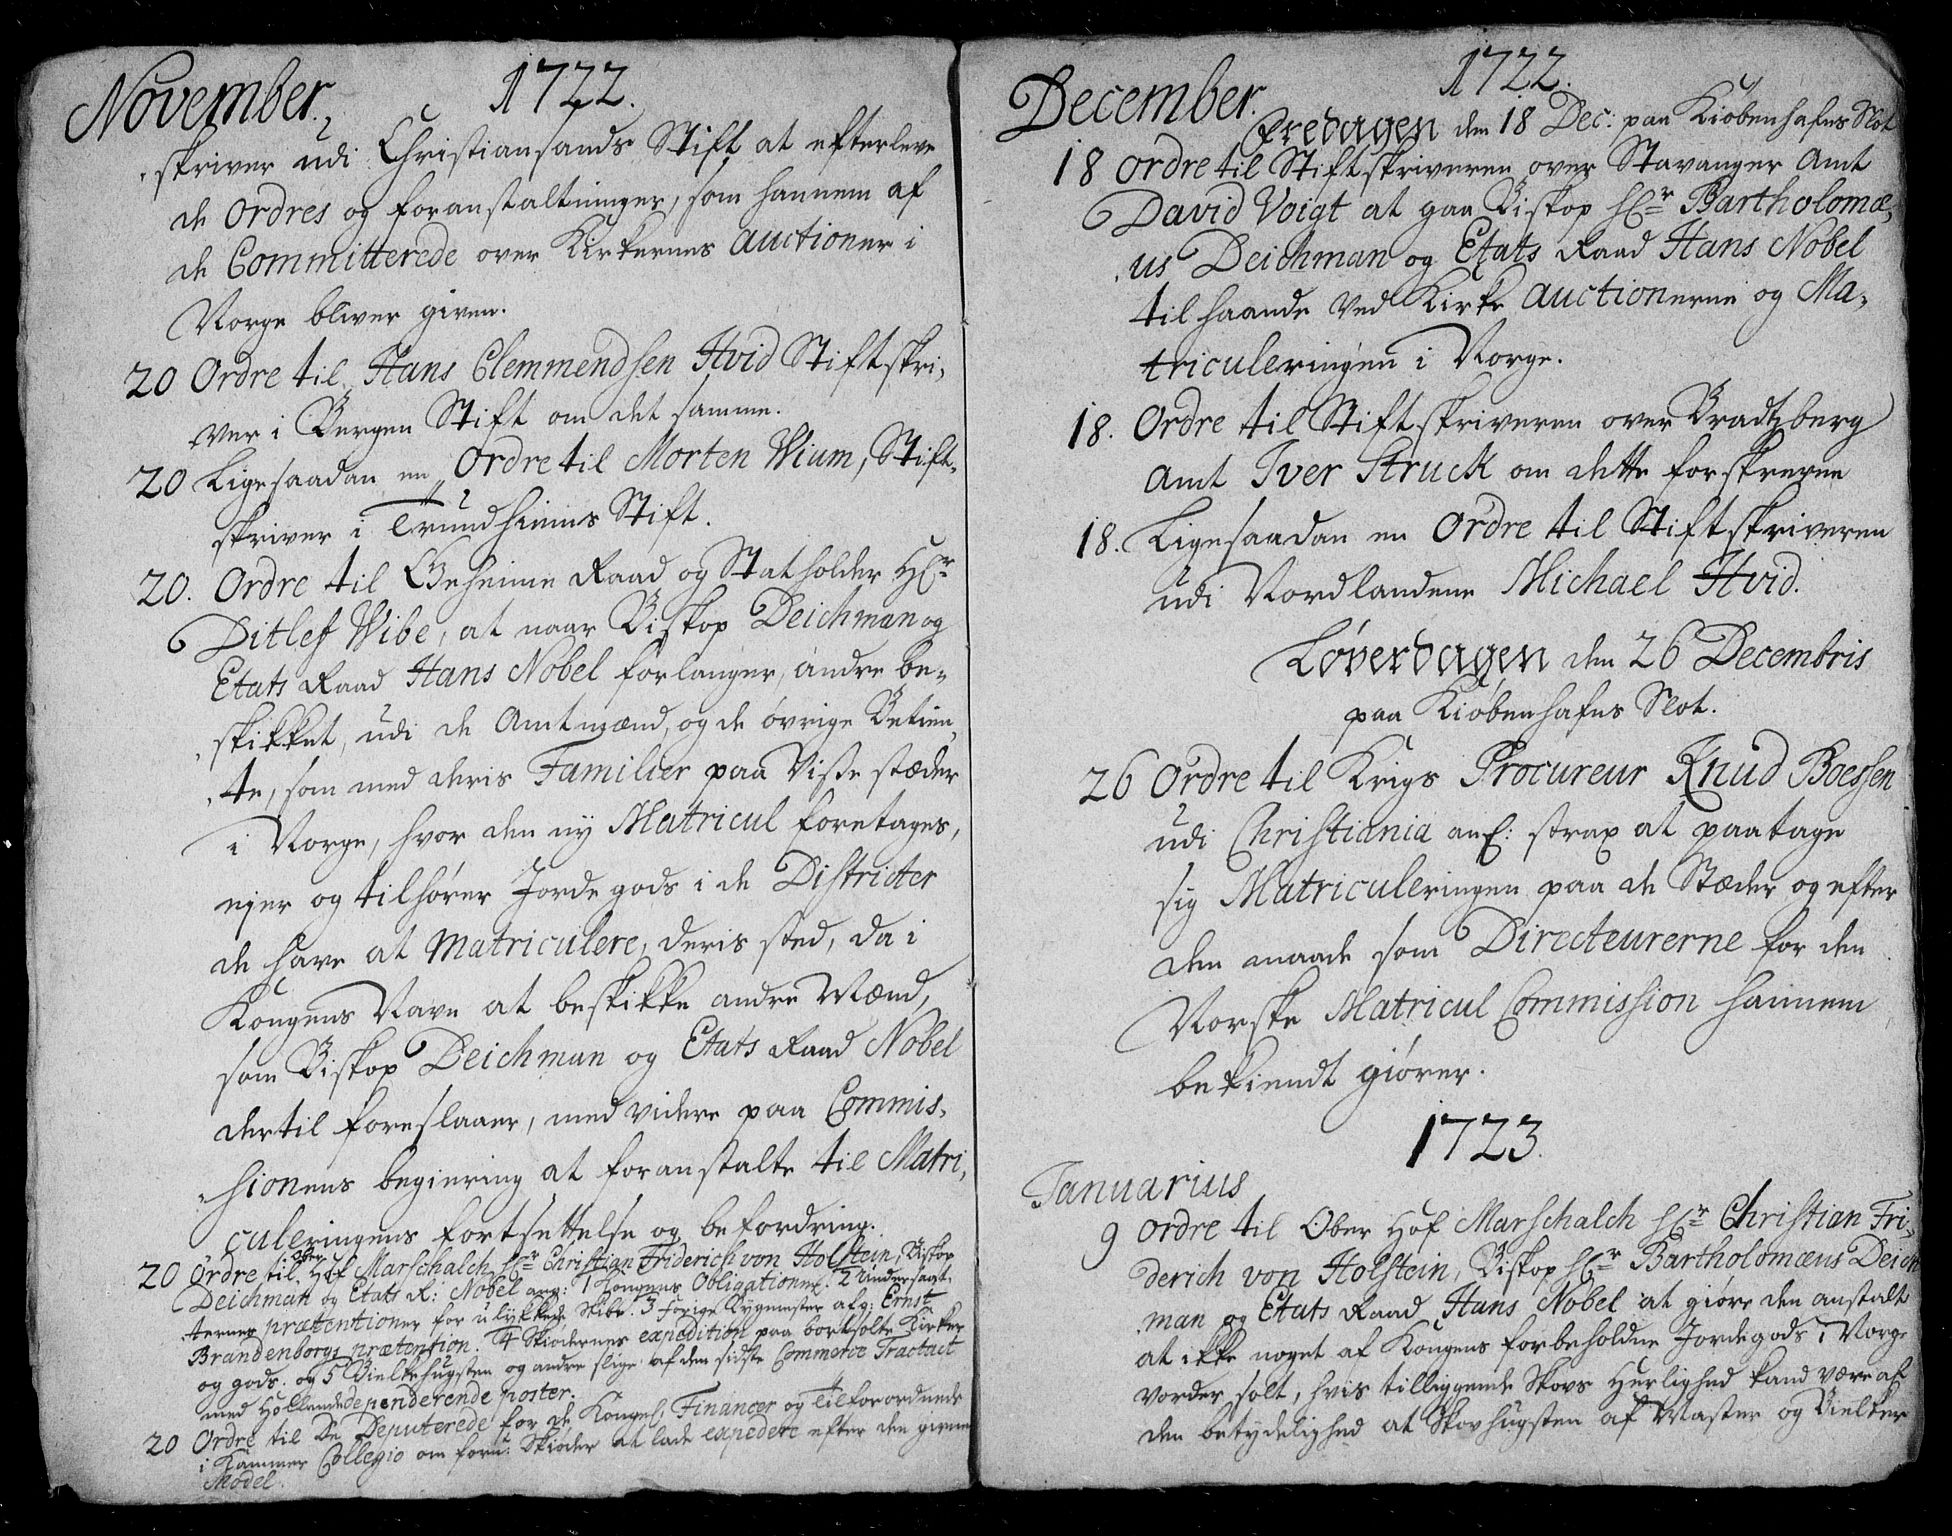 November. 1722.
skriver udi Christiansands Stift at efterleve
de Ordres og foranstaltninger, som hannem af
de Committerede over Kirkernes Auctioner i
Norge bliver given.
20 Ordre til Hans Clemmendsen Hvid Stiftskri-
ver i Bergen Stift om det samme.
20 Ligesaadan en Ordre til Morten Wium, Stift-
skriver i Trundhiems Stift.
20. Ordre til Geheime Raad og Statholder Hr
Ditlef Wibe, at naar Biskop Deichman og
Etats Raad Hans Nobel forlanger, andre be-
skikket, udi de Amtmænd, og de øvrige Betien-
te, som med deris Familier paa Visse stæder
i Norge, hvor den ny Matricul foretages,
ejer og tilhører Jorde gods i de Districter
de have at Matriculere, deris sted, da i
Kongens Navn at beskikke andre Mænd,
som Biskop Deichman og Etats Raad Nobel
dertil foreslaaer, med videre paa Commis-
sionens begiering at foranstalte til Matri-
culeringens fortsettelse og befordring.
20 Ordre til Ober Hof Marschalch Hr Christian Friderich von Holstein, Biskop
Deichman og Etats R: Nobel ang: 1 Kongens Obligationer. 2 Undersaat-
ternes prætentioner for ulykkede Skibe. 3 forige Bygmester afg: Ernst
Brandenborgs prætention. 4 Skiødernes expedition paa bortsolte Kirker
og gods. og 5 Bielkehugsten og andre slige af den sidste Commerce Tractact
med Holland dependerende poster.
20 Ordre til De Deputerede for de Kongel: Financer og tilforordnede
i Kammer Collegio om forn: Skiøder at lade expedere efter den givne
Model.
December. 1722.
Fredagen den 18 Dec: paa Kiøbenhafns Slot
18 Ordre til Stiftskriveren over Stavanger Amt
David Voigt at gaa Biskop Hr Bartholomæ-
us Deichman og Etats Raad Hans Nobel
til haande ved Kirke Auctionerne og Ma-
triculeringen i Norge.
18. Ordre til Stiftskriveren over Bradtzberg
Amt Iver Struck om dette forskrevne
18. Ligesaadan en Ordre til Stiftskriveren
udi Nordlandene Michael Hvid.
Løverdagen den 26 Decembris
paa Kiøbenhafns Slot.
26 Ordre til Krigs Procureur Knud Boessen
udi Christiania anl: strax at paatage
sig Matriculeringen paa de Stæder og efter
den maade som Directeurerne for den
Norske Matricul Commission hannem
bekiendt giører.
1723.
Januarius
9 Ordre til Ober Hof Marschalch Hr Christian Fri-
derich von Holstein, Biskop Hr Bartholomæus Deich
man og Etats Raad Hans Nobel at giøre den anstalt
at ikke noget af Kongens forbeholdne Jordegods i Norge
vorder solt, hvis tilliggende Skovs Herlighed kand være af
den betydelighed at Skovhugsten af Master og Bielker